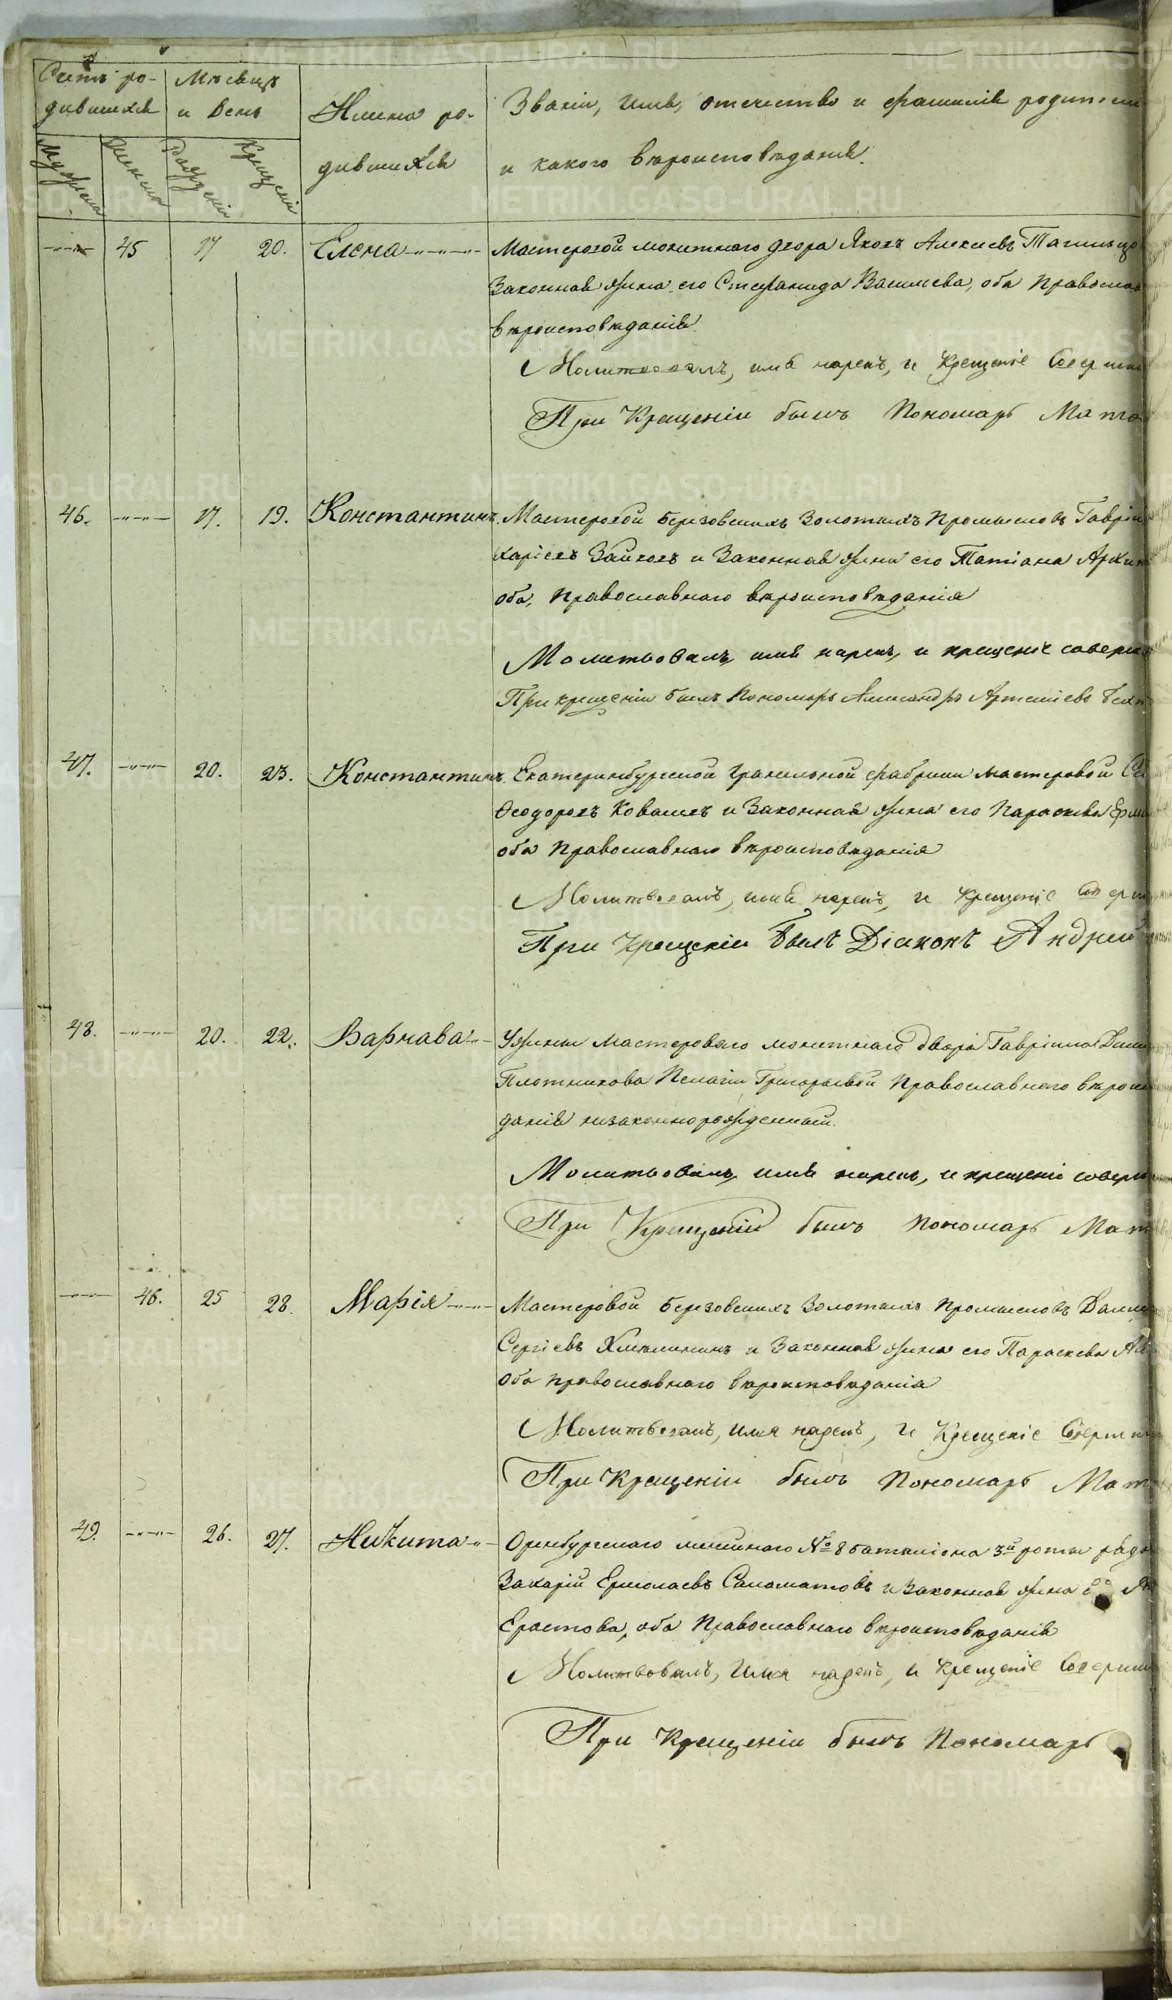 Счетъ ро-
дившихся
Мѣсяцъ
и день
Имина ро-
дившихся
Званіи, имя, отечество и фамилія родители
и какого вѣроисповѣданія.
Мужеска
Женска
Рожденій
Крещеній
45 17 20. Елена Мастеровой монетнаго двора Яковъ Алексѣевъ
Законная жена его Стефанида Васильева, оба Православ
вѣроисповѣданія.
Молитвовалъ, имя нарекъ, и Крещеніе Соверши
При Крещеніи былъ Пономарь Мат
46. 17. 19. Константинъ. Мастеровой Березовскихъ Золотыхъ Промысловъ Гаврі
Зайковъ и Законная жена его Татіана
оба, Православнаго вѣроисповѣданія
Молитвовалъ, имя нарекъ, и крещеніе соверш
При крещеніи былъ Пономарь Александръ Артеміевъ
47. 20. 23. Константинъ. Екатеринбургской Гранильной фабрики мастеровой
Ѳеодоровъ Ковалевъ и Законная жена его Параскева
оба Православнаго вѣроисповѣданія
Молитвовалъ, имя нарекъ, и Крещеніе Соверш
При Крещеніи былъ Діаконъ Андрей
48. 20. 22. Варнава Уженки мастероваго монетнаго двора Гавріила
Плотникова Пелагіи Григорьевой Православнаго вѣроиспо
данія незаконнорожденный.
Молитвовалъ, имя нарекъ, и крещеніе соверш
При Крещеніи былъ Пономарь Мат
46. 25 28. Марія Мастеровой Березовскихъ Золотыхъ Промысловъ
Сергіевъ Хмѣлининъ и Законная жена его Параскева
Оба православнаго вѣроисповѣданія
Молитвовалъ, имя нарекъ, и Крещеніе Соверши
При Крещеніи былъ Пономарь Мат
49. 26. 27. Никита Оренбургскаго линейнаго № 8 баталіона 3й роты рядо
Захарій Ермолаевъ Саломатовъ и Законная жена
Ерастова, оба Православнаго вѣроисповѣданія
Молитвовалъ, имя нарекъ, и Крещеніе Соверши
При Крещеніи былъ Пономарь
METRIKI.GASO-URAL.RU